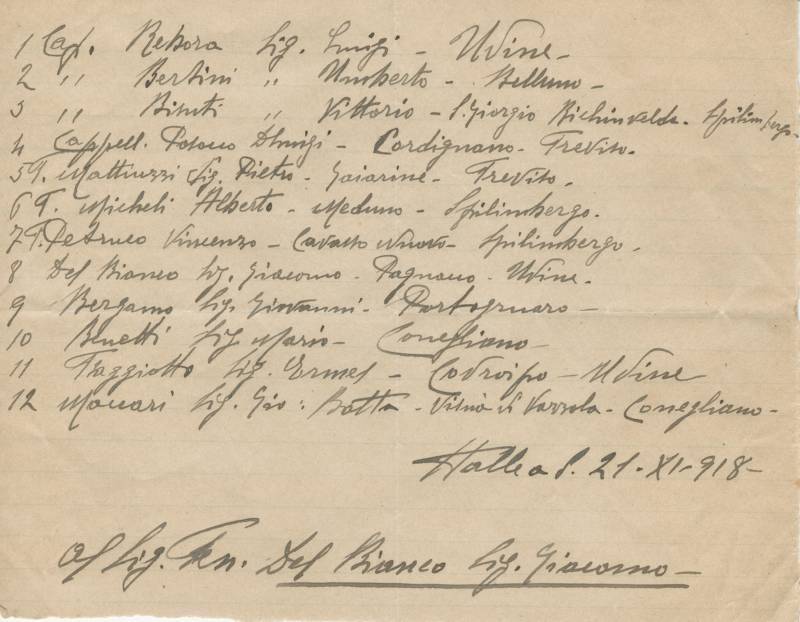 1 Cap. Rebora Sig. Luigi - Udine -
2 ,, Bertini ,, Umberto - Belluno -
3 ,, Bisuti ,, Vittorio - S. Giorgio Richinvelda - Spilimbergo -
4 Cappell. Posocco D. Luigi - Cordignano - Treviso.
5 T. Mattiuzzi Sig. Pietro - Gaiarine - Treviso.
6 T. Micheli Alberto - Meduno - Spilimbergo.
7 T. Petrucco Vincenzo - Cavasso Nuovo - Spilimbergo.
8 Del Bianco Sig. Giacomo - Pagnacco - Udine.
9 Bergamo Sig. Giovanni - Portogruaro -
10 Benetti Sig. Mario - Conegliano -
11 Faggiotto Sig. Ermes - Codroipo - Udine
12 Maccari Sig. Gio: Batta - Visnà di Vazzola - Conegliano -
Halle a S. 21-XI-918-
Al Sig. Ten. Del Bianco Sig. Giacomo -